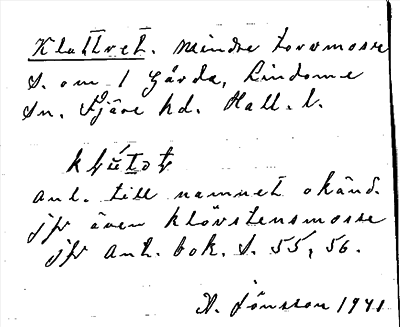 Klattret. Mindre torvmosse
S. om 1 Gärda, Lindome
Sn. Fjäre hd. Hall. l.
Anl. till namnet okänd.
jfr även Klövstensmosse
jfr Ant. bok. S. 55, 56.
A. Jönsson 1941